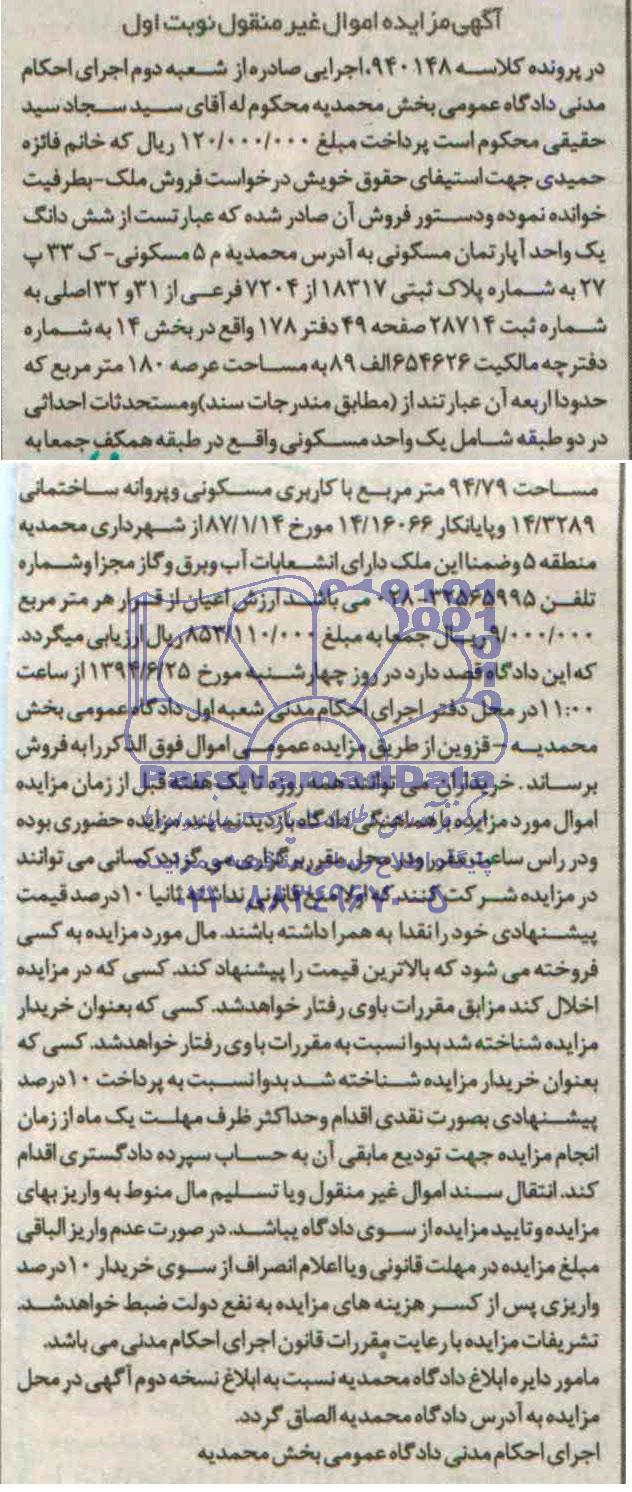 آگهی مزایده اموال غیر منقول نوبت اول
در پرونده کلاسه ۹۴۰۱۴۸، اجرایی صادره از شعبه دوم اجرای احکام
مدنی دادگاه عمومی بخش محمدیه محکوم له آقای سید سجاد سید
حقیقی محکوم است پرداخت مبلغ ۱۲۰/۰۰۰/۰۰۰ ریال که خانم فائزه
حمیدی جهت استیفای حقوق خویش درخواست فروش ملک-بطرفیت
خوانده نموده ودستور فروش آن صادر شده که عبارتست از شش دانگ
یک واحد آپارتمان مسکونی به آدرس محمدیه م ۵ مسکونی- ک ۳۳ پ
۲۷ به شماره پلاک ثبتی ۱۸۳۱۷ از ۷۲۰۴ فرعی از ۳۱و ۳۲اصلی به
شماره ثبت ۲۸۷۱۴ صفحه ۴۹ دفتر ۱۷۸ واقع در بخش ۱۴ به شماره
دفترچه مالکیت ۶۵۴۶۲۶الف ۸۹ به مساحت عرصه ۱۸۰ متر مربع که
حدودا اربعه آن عبارتند از (مطابق مندرجات سند)ومستحدثات احداثی
در دو طبقه شامل یک واحد مسکونی واقع در طبقه همکف جمعا به
مساحت ۹۴/۷۹ متر مربع با کاربری مسکونی وپروانه ساختمانی
۱۴/۳۲۸۹ وپایانکار ۱۴/۱۶۰۶۶ مورخ ۸۷/۱/۱۴از شهرداری محمدیه
منطقه ۵ وضمنا این ملک دارای انشعابات آب وبرق وگاز مجزا وشماره
تلفن ۳۲۵۶۵۹۹۵-۰۲۸ می باشد ارزش اعیان از قرار هر متر مربع
۹/۰۰۰/۰۰۰ ریال جمعا به مبلغ ۸۵۳/۱۱۰/۰۰۰ ریال ارزیابی میگردد.
که این دادگاه قصد دارد در روز چهارشنبه مورخ ۱۳۹۴/۶/۲۵ از ساعت
۱۱:۰۰در محل دفتر اجرای احکام مدنی شعبه اول دادگاه عمومی بخش
محمدیه - قزوین از طریق مزایده عمومی اموال فوق الذکر را به فروش
برساند. خریداران می توانند همه روزه تا یک هفته قبل از زمان مزایده
اموال مورد مزایده با هماهنگی دادگاه بازدید نمایند مزایده حضوری بوده
ودر راس ساعت مقرر ودر محل مقرر برگزاری می گردد کسانی می توانند
در مزایده شرکت کنند که اولا منع قانونی نداشته ثانیا ۱۰درصد قیمت
پیشنهادی خود را نقدا به همرا داشته باشند. مال مورد مزایده به کسی
فروخته می شود که بالاترین قیمت را پیشنهاد کند. کسی که در مزایده
اخلال کند مزابق مقررات باوی رفتار خواهدشد. کسی که بعنوان خریدار
مزایده شناخته شد بدوا نسبت به مقررات باوی رفتار خواهدشد. کسی که
بعنوان خریدار مزایده شناخته شد بدوا نسبت به پرداخت ۱۰درصد
پیشنهادی بصورت نقدی اقدام وحداکثر ظرف مهلت یک ماه از زمان
انجام مزایده جهت تودیع مابقی آن به حساب سپرده دادگستری اقدام
کند. انتقال سند اموال غیر منقول ویا تسلیم مال منوط به واریز بهای
مزایده وتایید مزایده از سوی دادگاه یباشد. در صورت عدم واریز الباقی
مبلغ مزایده در مهلت قانونی ویا اعلام انصراف از سوی خریدار ۱۰درصد
واریزی پس از کسر هزینه های مزایده به نفع دولت ضبط خواهدشد.
تشریفات مزایده با رعایت مقررات قانون اجرای احکام مدنی می باشد.
مامور دایره ابلاغ دادگاه محمدیه نسبت به ابلاغ نسخه دوم آگهی در محل
مزایده به آدرس دادگاه محمدیه الصاق گردد.
اجرای احکام مدنی دادگاه عمومی بخش محمدیه
ParsNamadData
۰۲۱-۸۸۳۴۹۶۷۰-۵